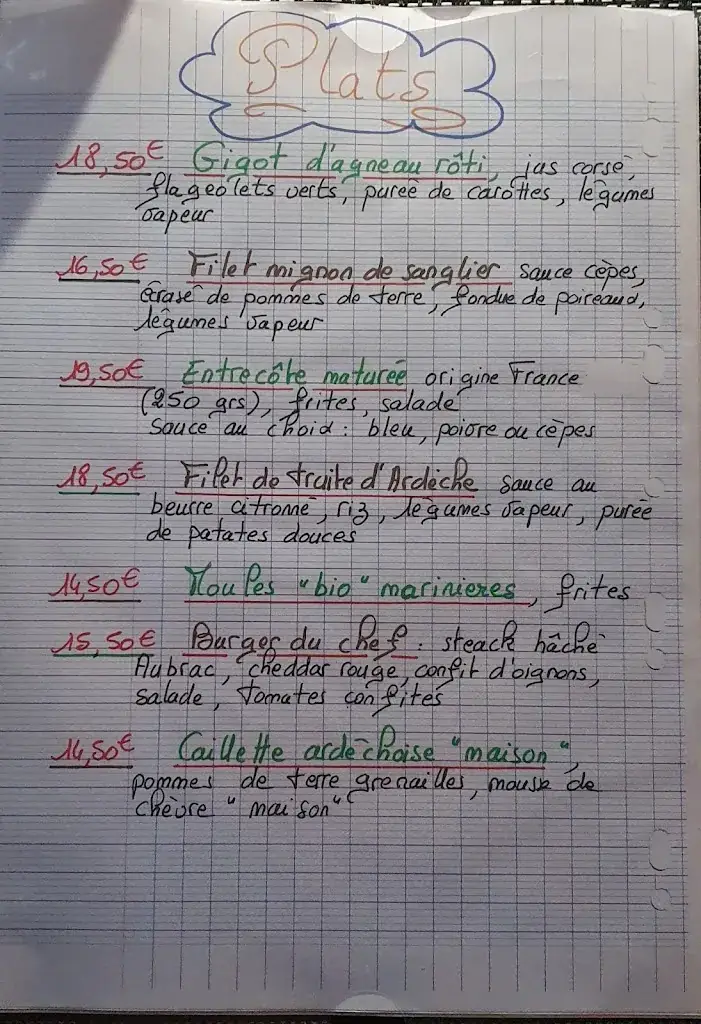 Plats
18,50€ Gigot d'agneau rôti, jus corsé,
flageolets verts, purée de carottes, légumes
vapeur
16,50€ Filet mignon de sanglier sauce cèpes,
écrasé de pommes de terre, fondue de poireaux,
légumes vapeur
19,50€ Entrecôte maturée origine France
(250 grs), frites, salade
Sauce au choix : bleu, poivre ou cèpes
18,50€ Filet de truite d'Ardèche sauce au
beurre citronné, riz, légumes vapeur, purée
de patates douces
14,50€ Moules "bio" marinieres, frites
15,50€ Burger du chef : steack hâché
Aubrac, cheddar rouge, confit d'oignons,
salade, tomates confites
14,50€ Caillette ardèchoise "maison",
pommes de terre grenailles, mousse de
chèvre "maison"